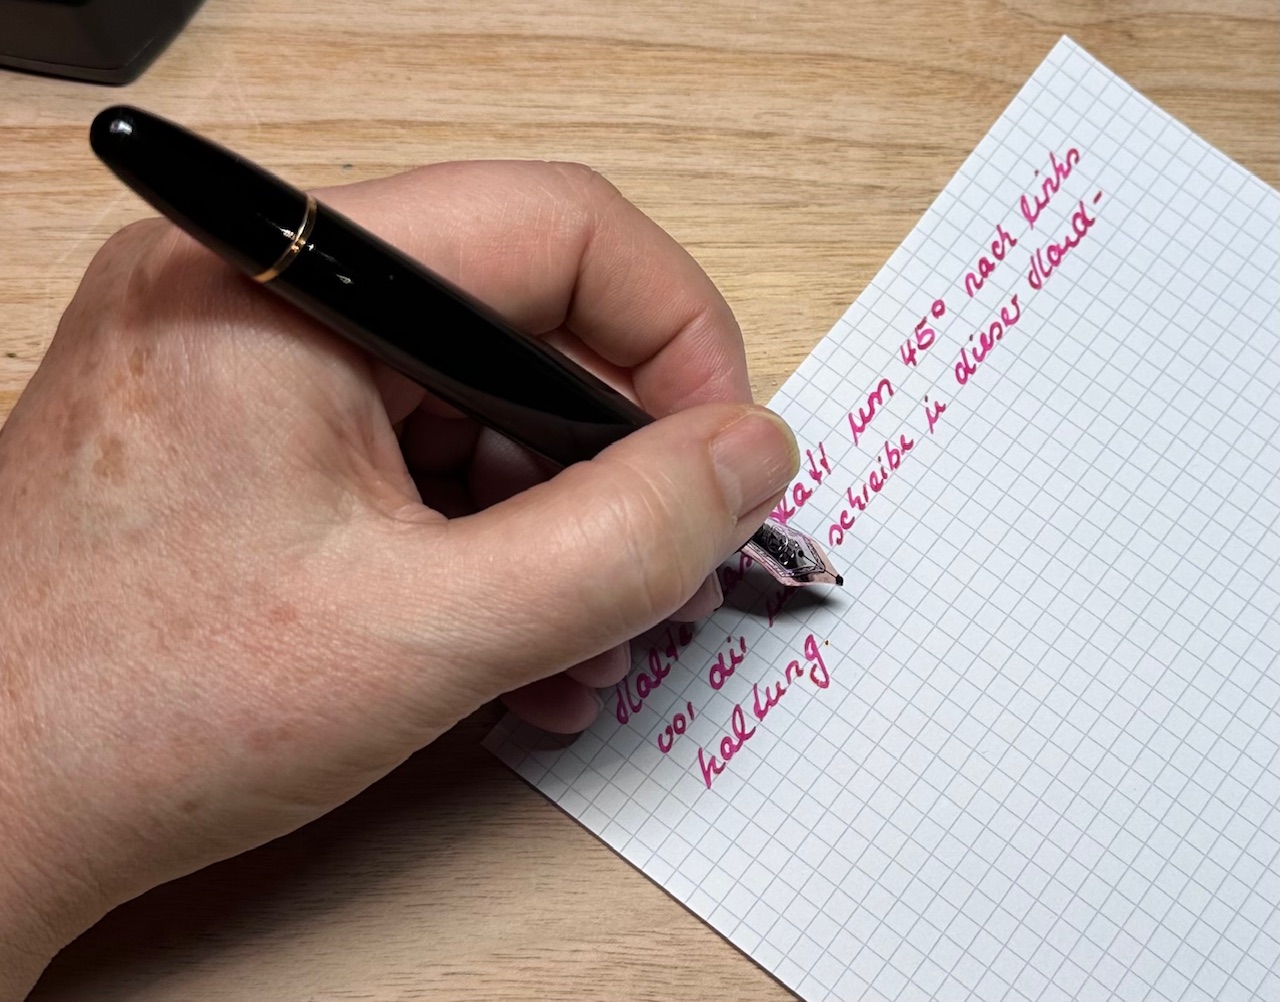 Halte das Blatt um 45° nach links
vor dir und schreibe in dieser Hand-
haltung.